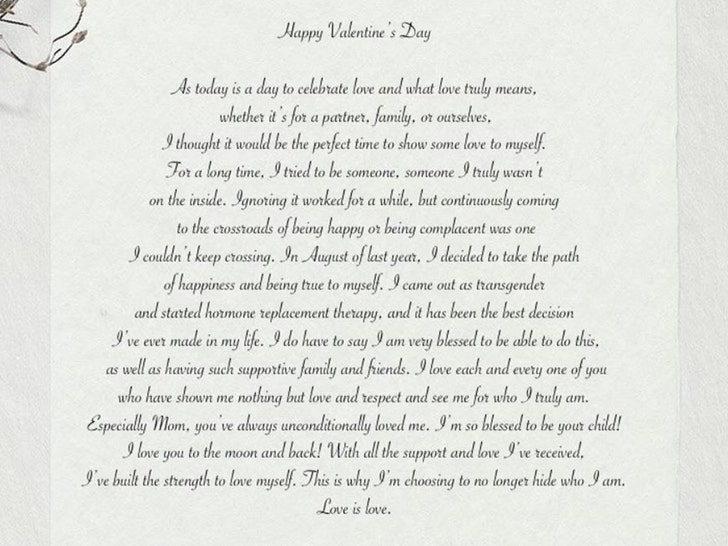 Happy Valentine's Day
As today is a day to celebrate love and what love truly means,
whether it's for a partner, family, or ourselves,
I thought it would be the perfect time to show some love to myself.
For a long time, I tried to be someone, someone I truly wasn't
on the inside. Ignoring it worked for a while, but continuously coming
to the crossroads of being happy or being complacent was one
I couldn't keep crossing. In August of last year, I decided to take the path
of happiness and being true to myself. I came out as transgender
and started hormone replacement therapy, and it has been the best decision
I've ever made in my life. I do have to say I am very blessed to be able to do this,
as well as having such supportive family and friends. I love each and every one of you
who have shown me nothing but love and respect and see me for who I truly am.
Especially Mom, you've always unconditionally loved me. I'm so blessed to be your child!
I love you to the moon and back! With all the support and love I've received,
I've built the strength to love myself. This is why I'm choosing to no longer hide who I am.
Love is love.